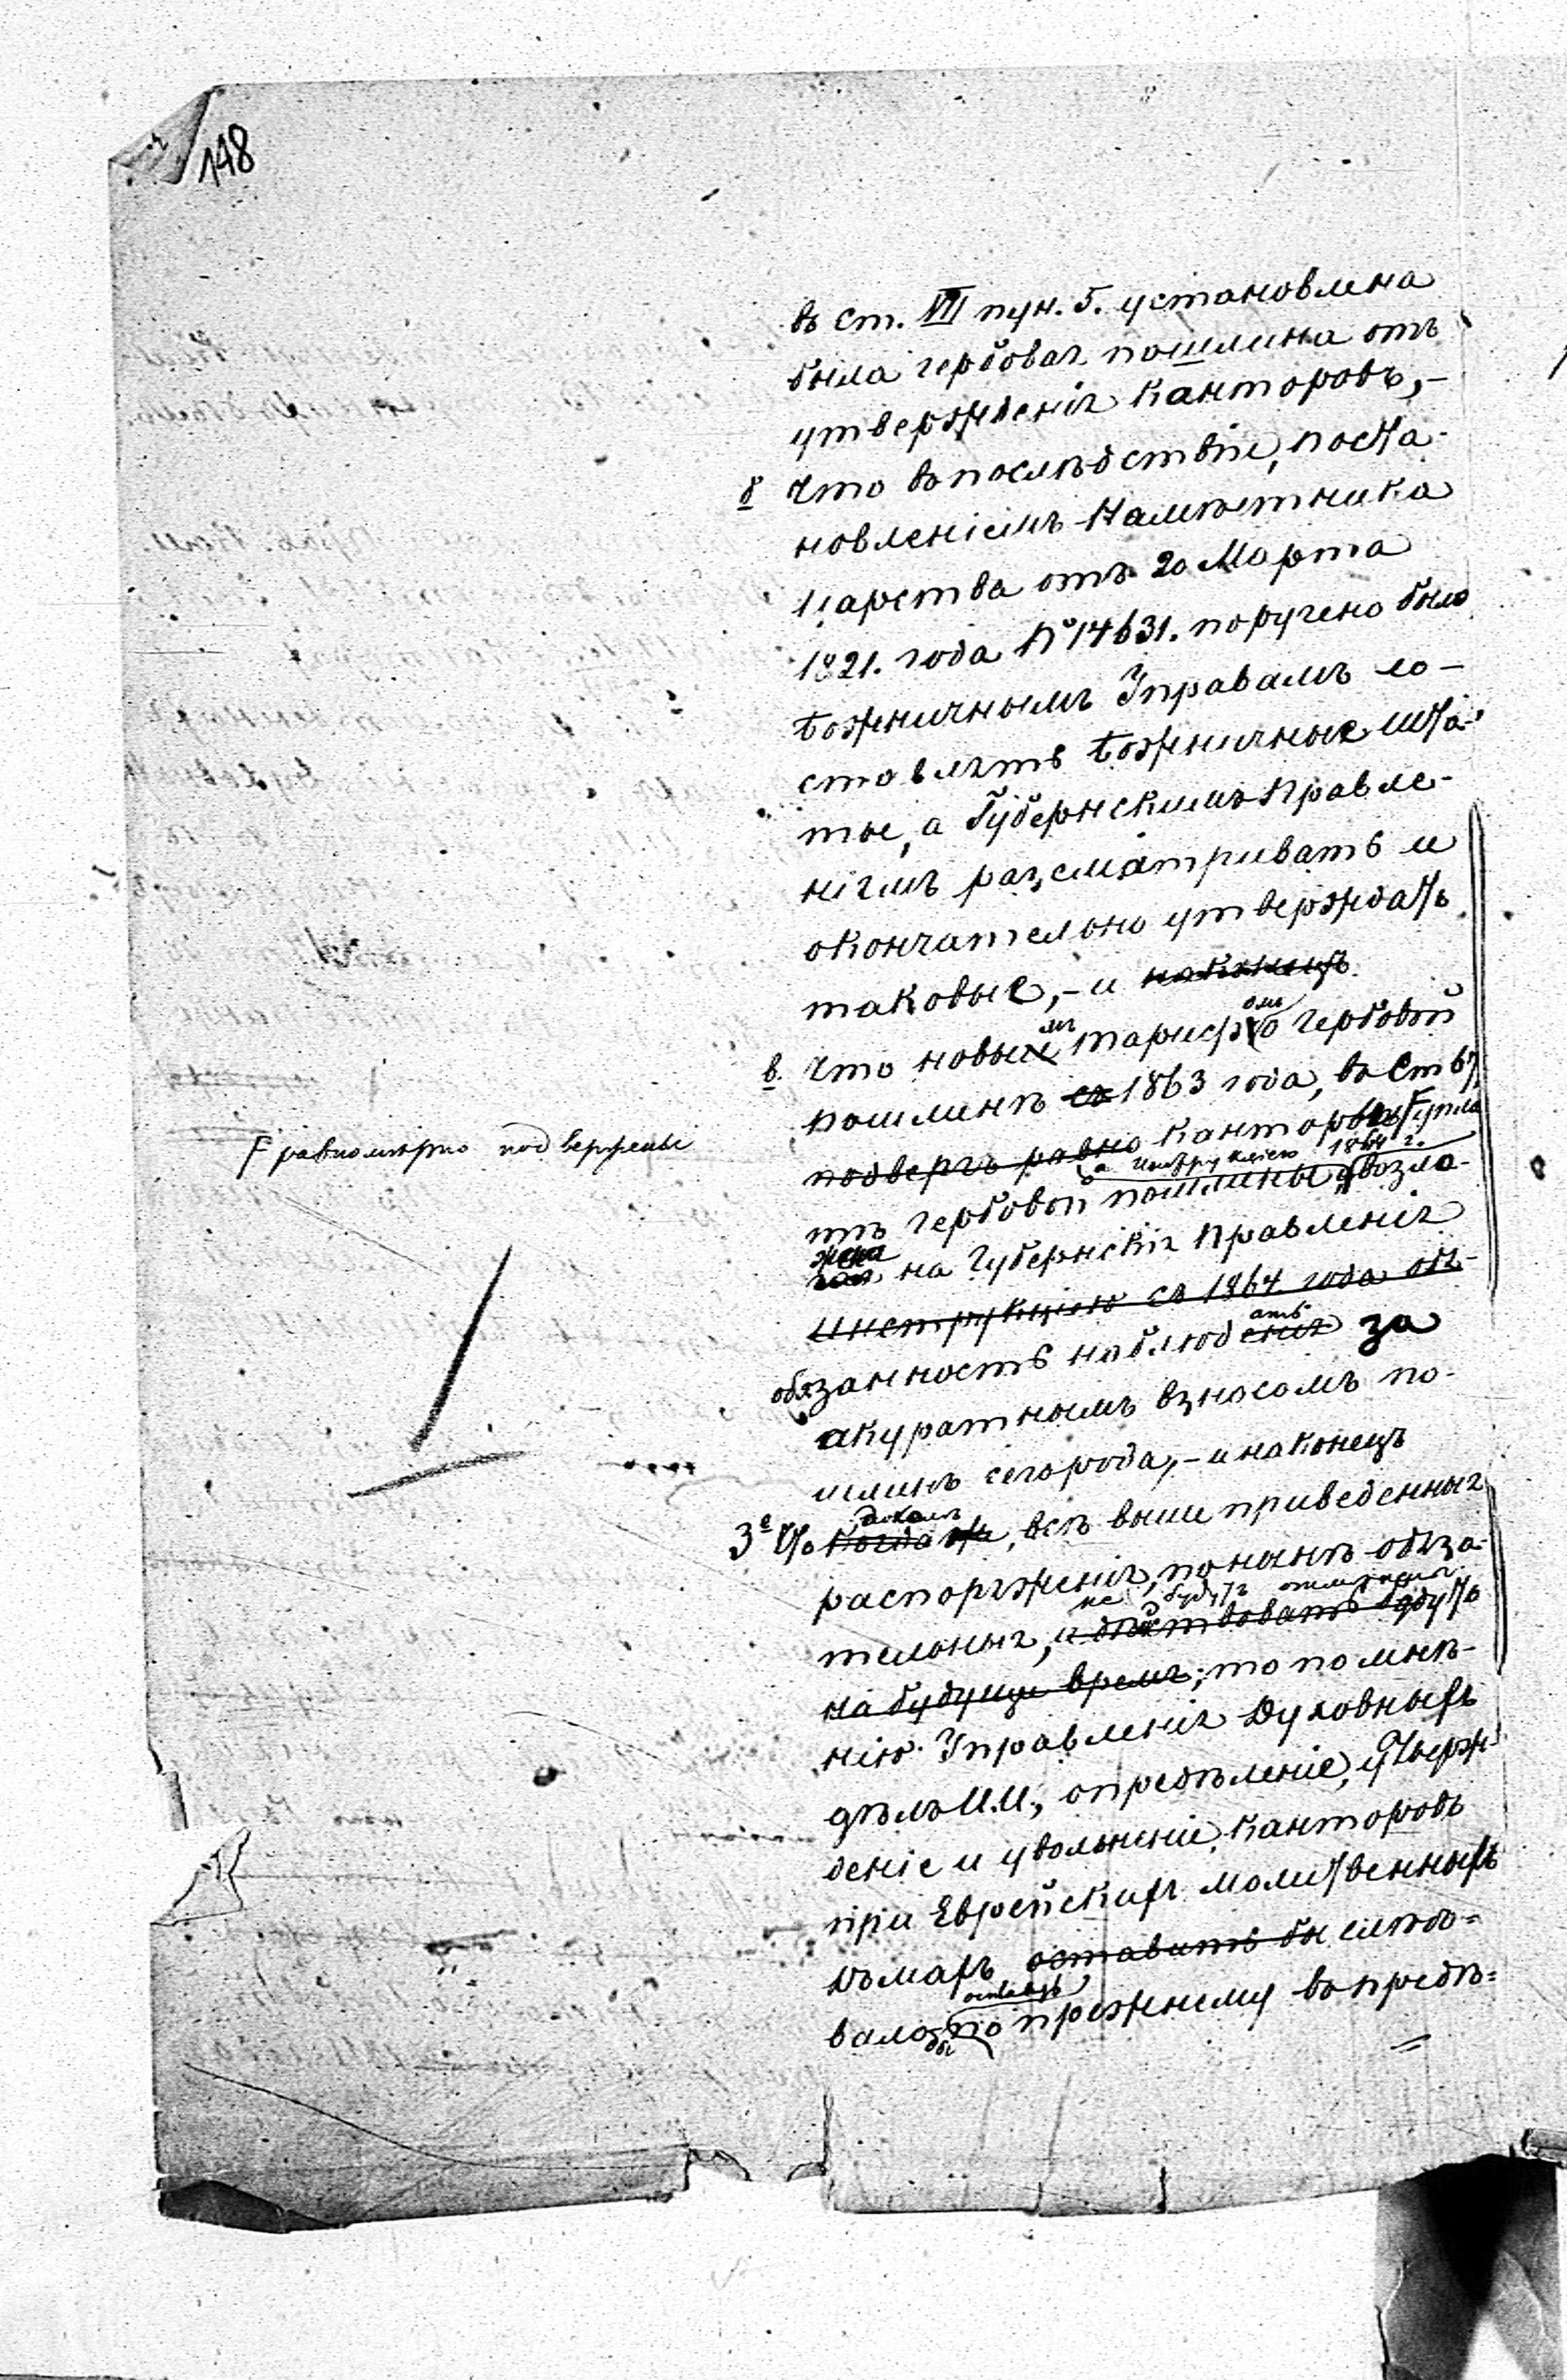 148
въ ст. VII пун. 5. установлена
была гербовая пошлина отъ
утвержденія канторовъ,-
б что впослѣдствіе, поста-
новленіемъ Намѣстника
Царства отъ 20 Марта
1821. года № 14631. поручено было
божничнымъ Управамъ со-
ставлять божничные шта-
ты, а Губернскимъ Правле-
ніямъ разсматривать и
окончательно утверждать
таковые,- и наконецъ
в. что новымъ тарифомъ о гербовой
пошлинѣ съ 1863 года, въ ст 67,
подвергъ равно канторовъ F упла
а инструкціею 1864 г.
тѣ гербовой пошлины, возло-
жена на Губернскія Правленія
инструкціею съ 1864 года об-
обязанность наблюдать за
акуратнымъ взносомъ по-
шлинъ сего рода,- и наконецъ
3е что когда же, всѣ выше приведенныя
распоряженія, понынѣ обяза-
не будутъ отмѣнены
тельныя, и дѣйствовать будутъ
на будуще время; то по мнѣ-
нію Управленія Духовныхъ
дѣлъ И.И., опредѣленіе, утверж
деніе и увольненіе, канторовъ
при Еврейскихъ молитвенныхъ
домахъ оставить бы слѣдо-
вало бы по прежнему въ предѣ-
F равномѣрно подвержены